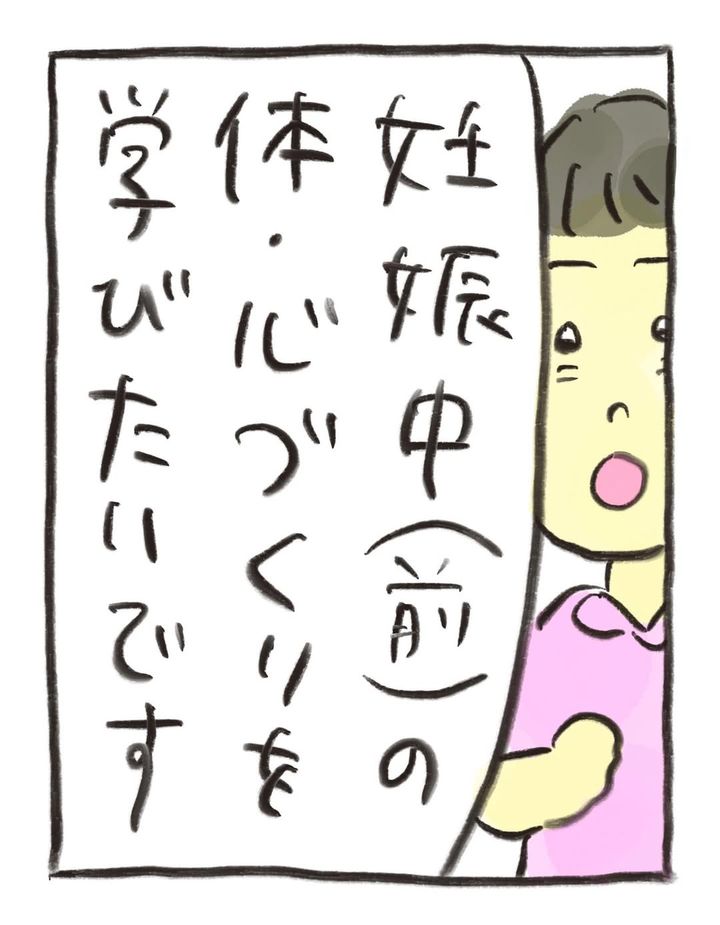 妊娠中(前)の
体・心づくりを
学びたいです